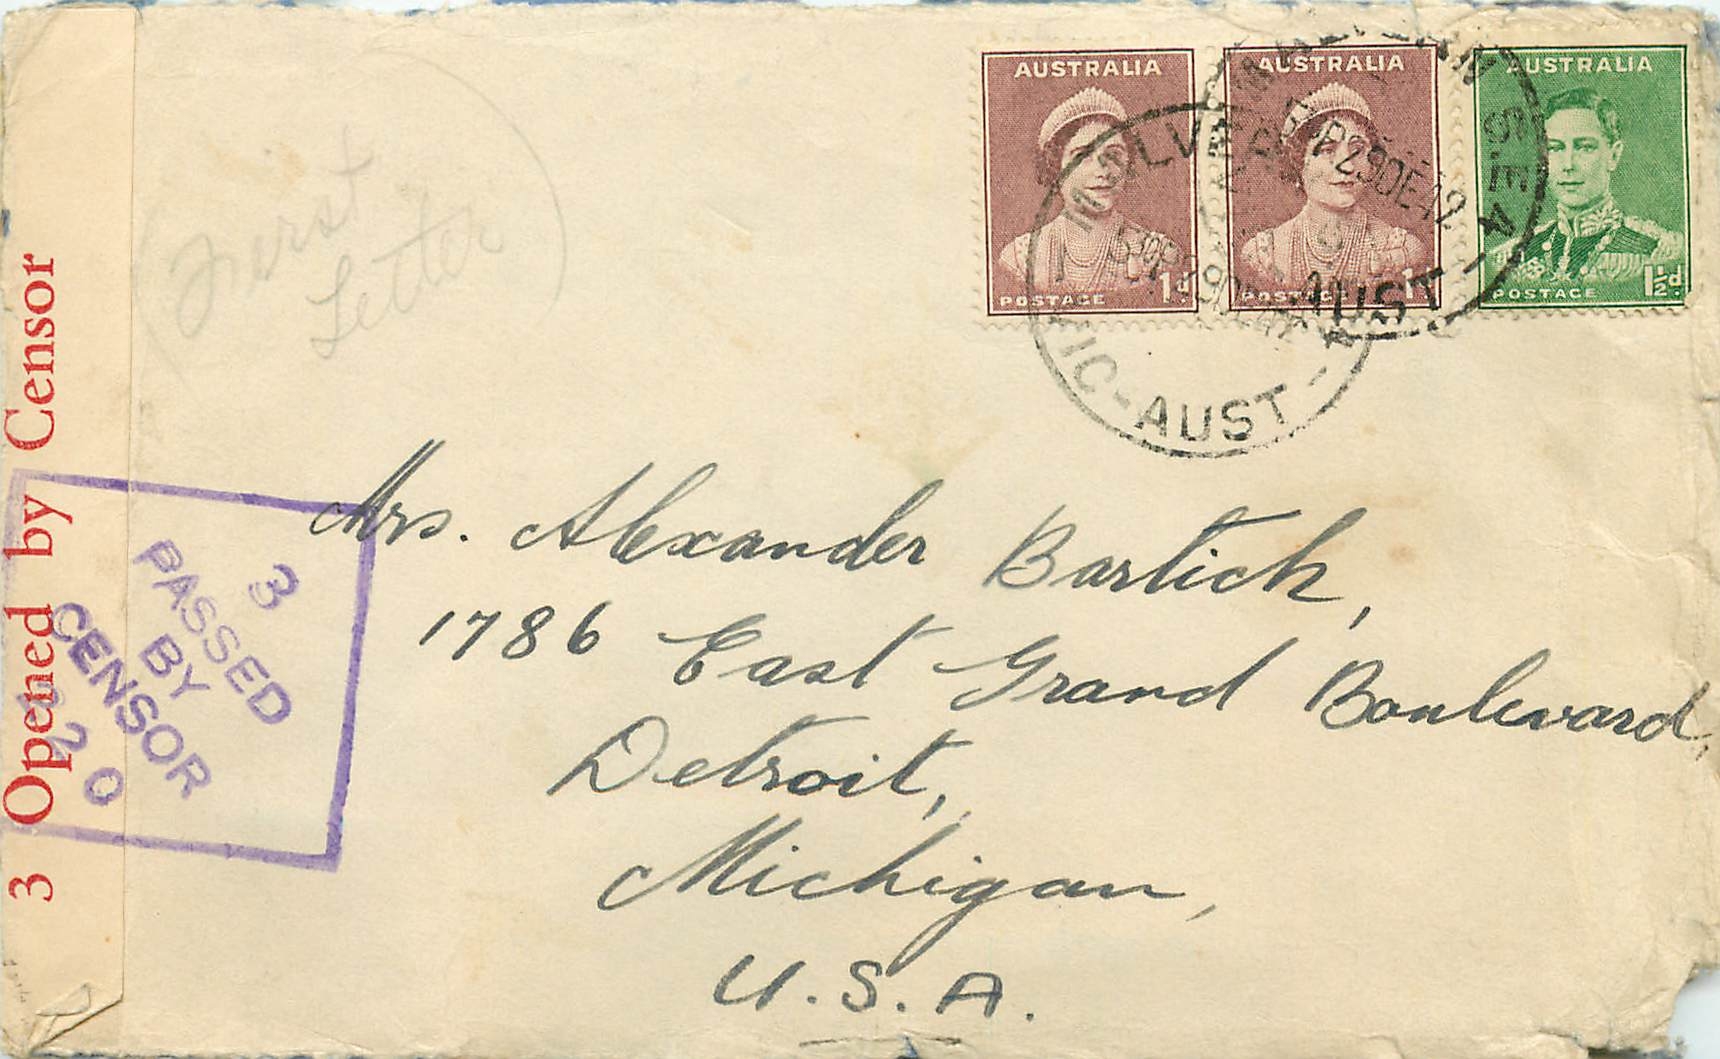 First
Letter
AUSTRALIA
POSTAGE 1d.
AUSTRALIA
POSTAGE 1d.
AUSTRALIA
POSTAGE 1½d.
MALVERN S.E.4
29DE42
VIC-AUST
AUST
3 Opened by Censor
3
PASSED
BY
CENSOR
20
Mrs. Alexander Bartich,
1786 East Grand Boulevard,
Detroit,
Michigan,
U.S.A.